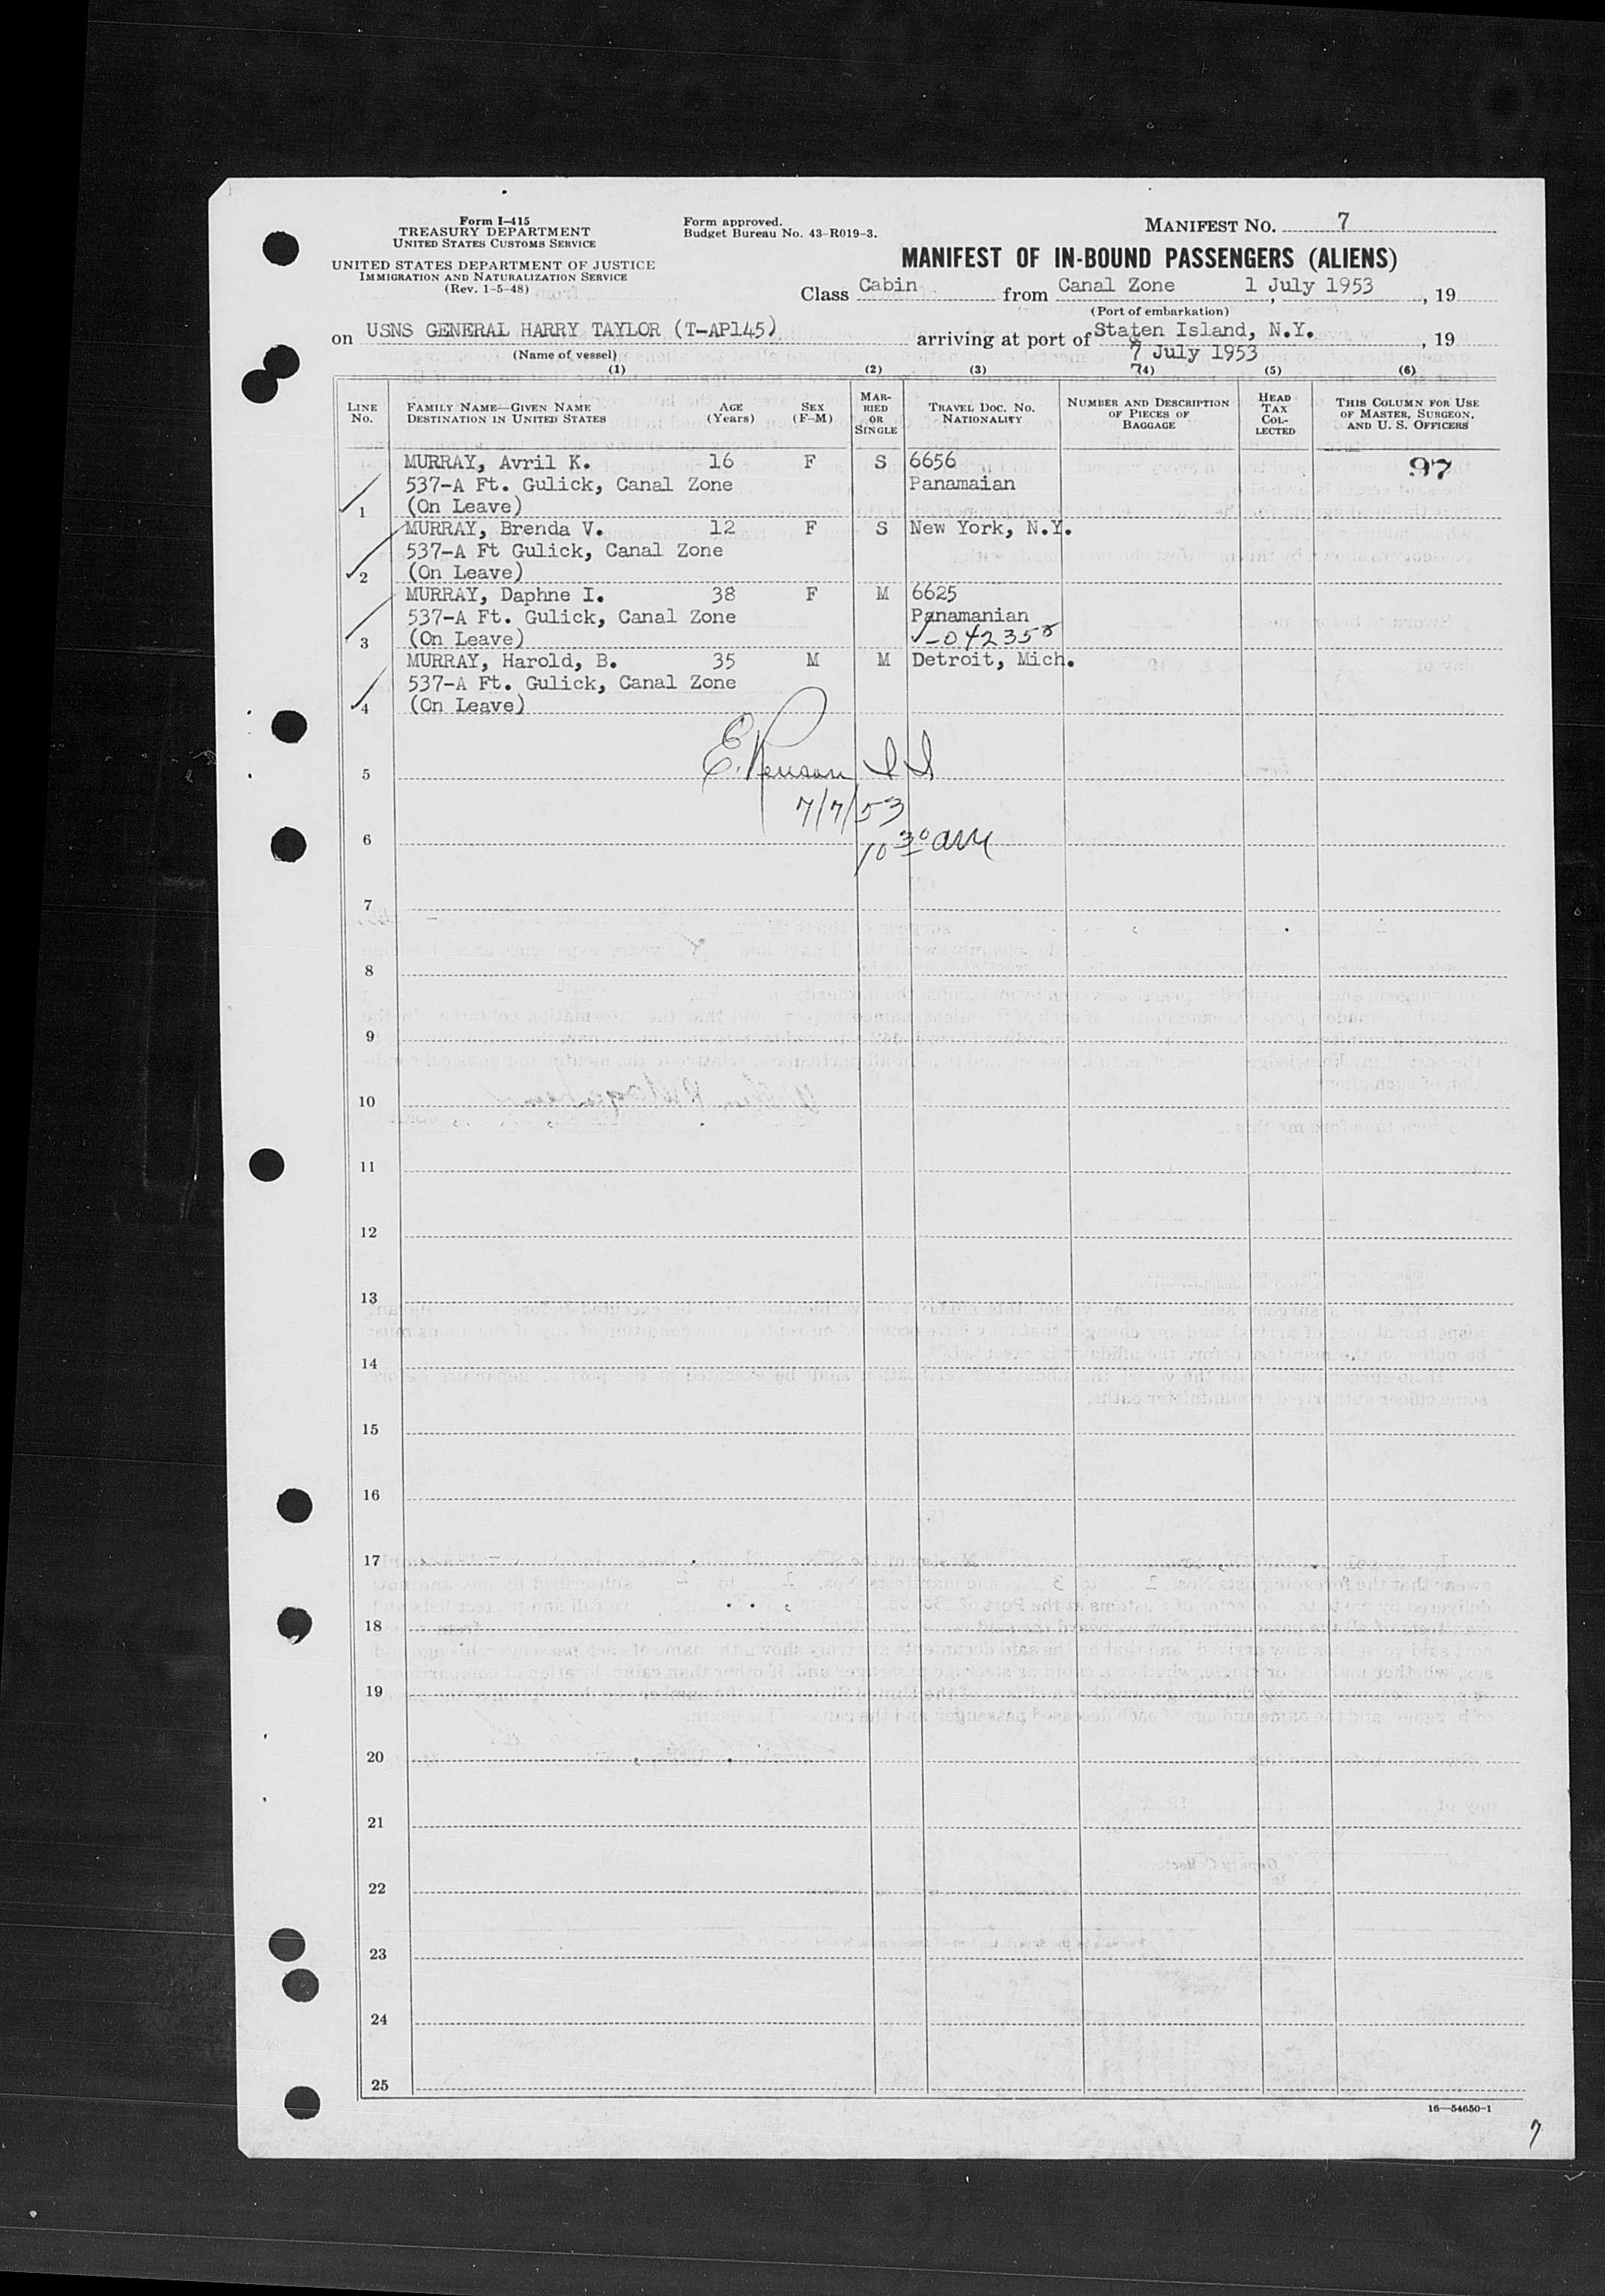 Form I-415
TREASURY DEPARTMENT
UNITED STATES CUSTOMS SERVICE
UNITED STATES DEPARTMENT OF JUSTICE
IMMIGRATION AND NATURALIZATION SERVICE
(Rev. 1-5-48)
Form approved.
Budget Bureau No. 43-R019-3.
MANIFEST NO. 7
MANIFEST OF IN-BOUND PASSENGERS (ALIENS)
Class Cabin from Canal Zone 1 July 1953, 19
(Port of embarkation)
on USNS GENERAL HARRY TAYLOR (T-AP145) arriving at port of Staten Island, N.Y., 19
(Name of vessel) 7 July 1953
(1) (2) (3) (4) (5) (6)
LINE No. FAMILY NAME—GIVEN NAME DESTINATION IN UNITED STATES AGE (Years) SEX (F-M) MARRIED OR SINGLE TRAVEL DOC. NO. NATIONALITY NUMBER AND DESCRIPTION OF PIECES OF BAGGAGE HEAD TAX COLLECTED THIS COLUMN FOR USE OF MASTER, SURGEON, AND U. S. OFFICERS
MURRAY, Avril K. 16 F S 6656 97
537-A Ft. Gulick, Canal Zone Panamaian
1 (On Leave)
MURRAY, Brenda V. 12 F S New York, N.Y.
537-A Ft Gulick, Canal Zone
2 (On Leave)
MURRAY, Daphne I. 38 F M 6625
537-A Ft. Gulick, Canal Zone Panamanian
3 (On Leave) -042358
MURRAY, Harold, B. 35 M M Detroit, Mich.
537-A Ft. Gulick, Canal Zone
4 (On Leave)
5 E.
7/7/53
6 10 30 am
7
8
9
10
11
12
13
14
15
16
17
18
19
20
21
22
23
24
25
16—54650-1
7